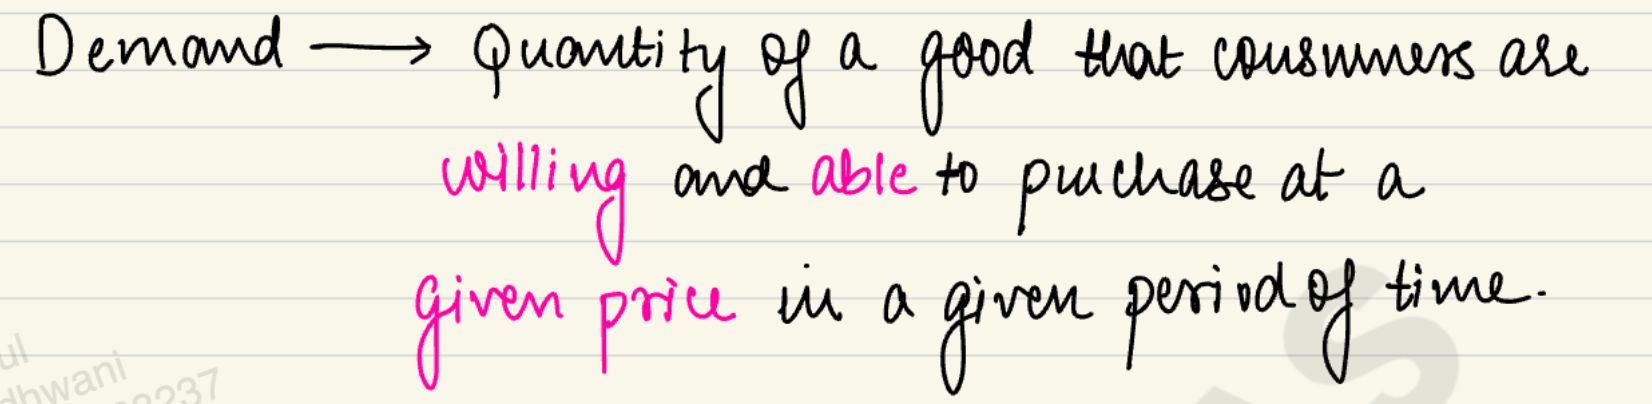 Demand → Quantity of a good that consumers are
willing and able to purchase at a
given price in a given period of time.